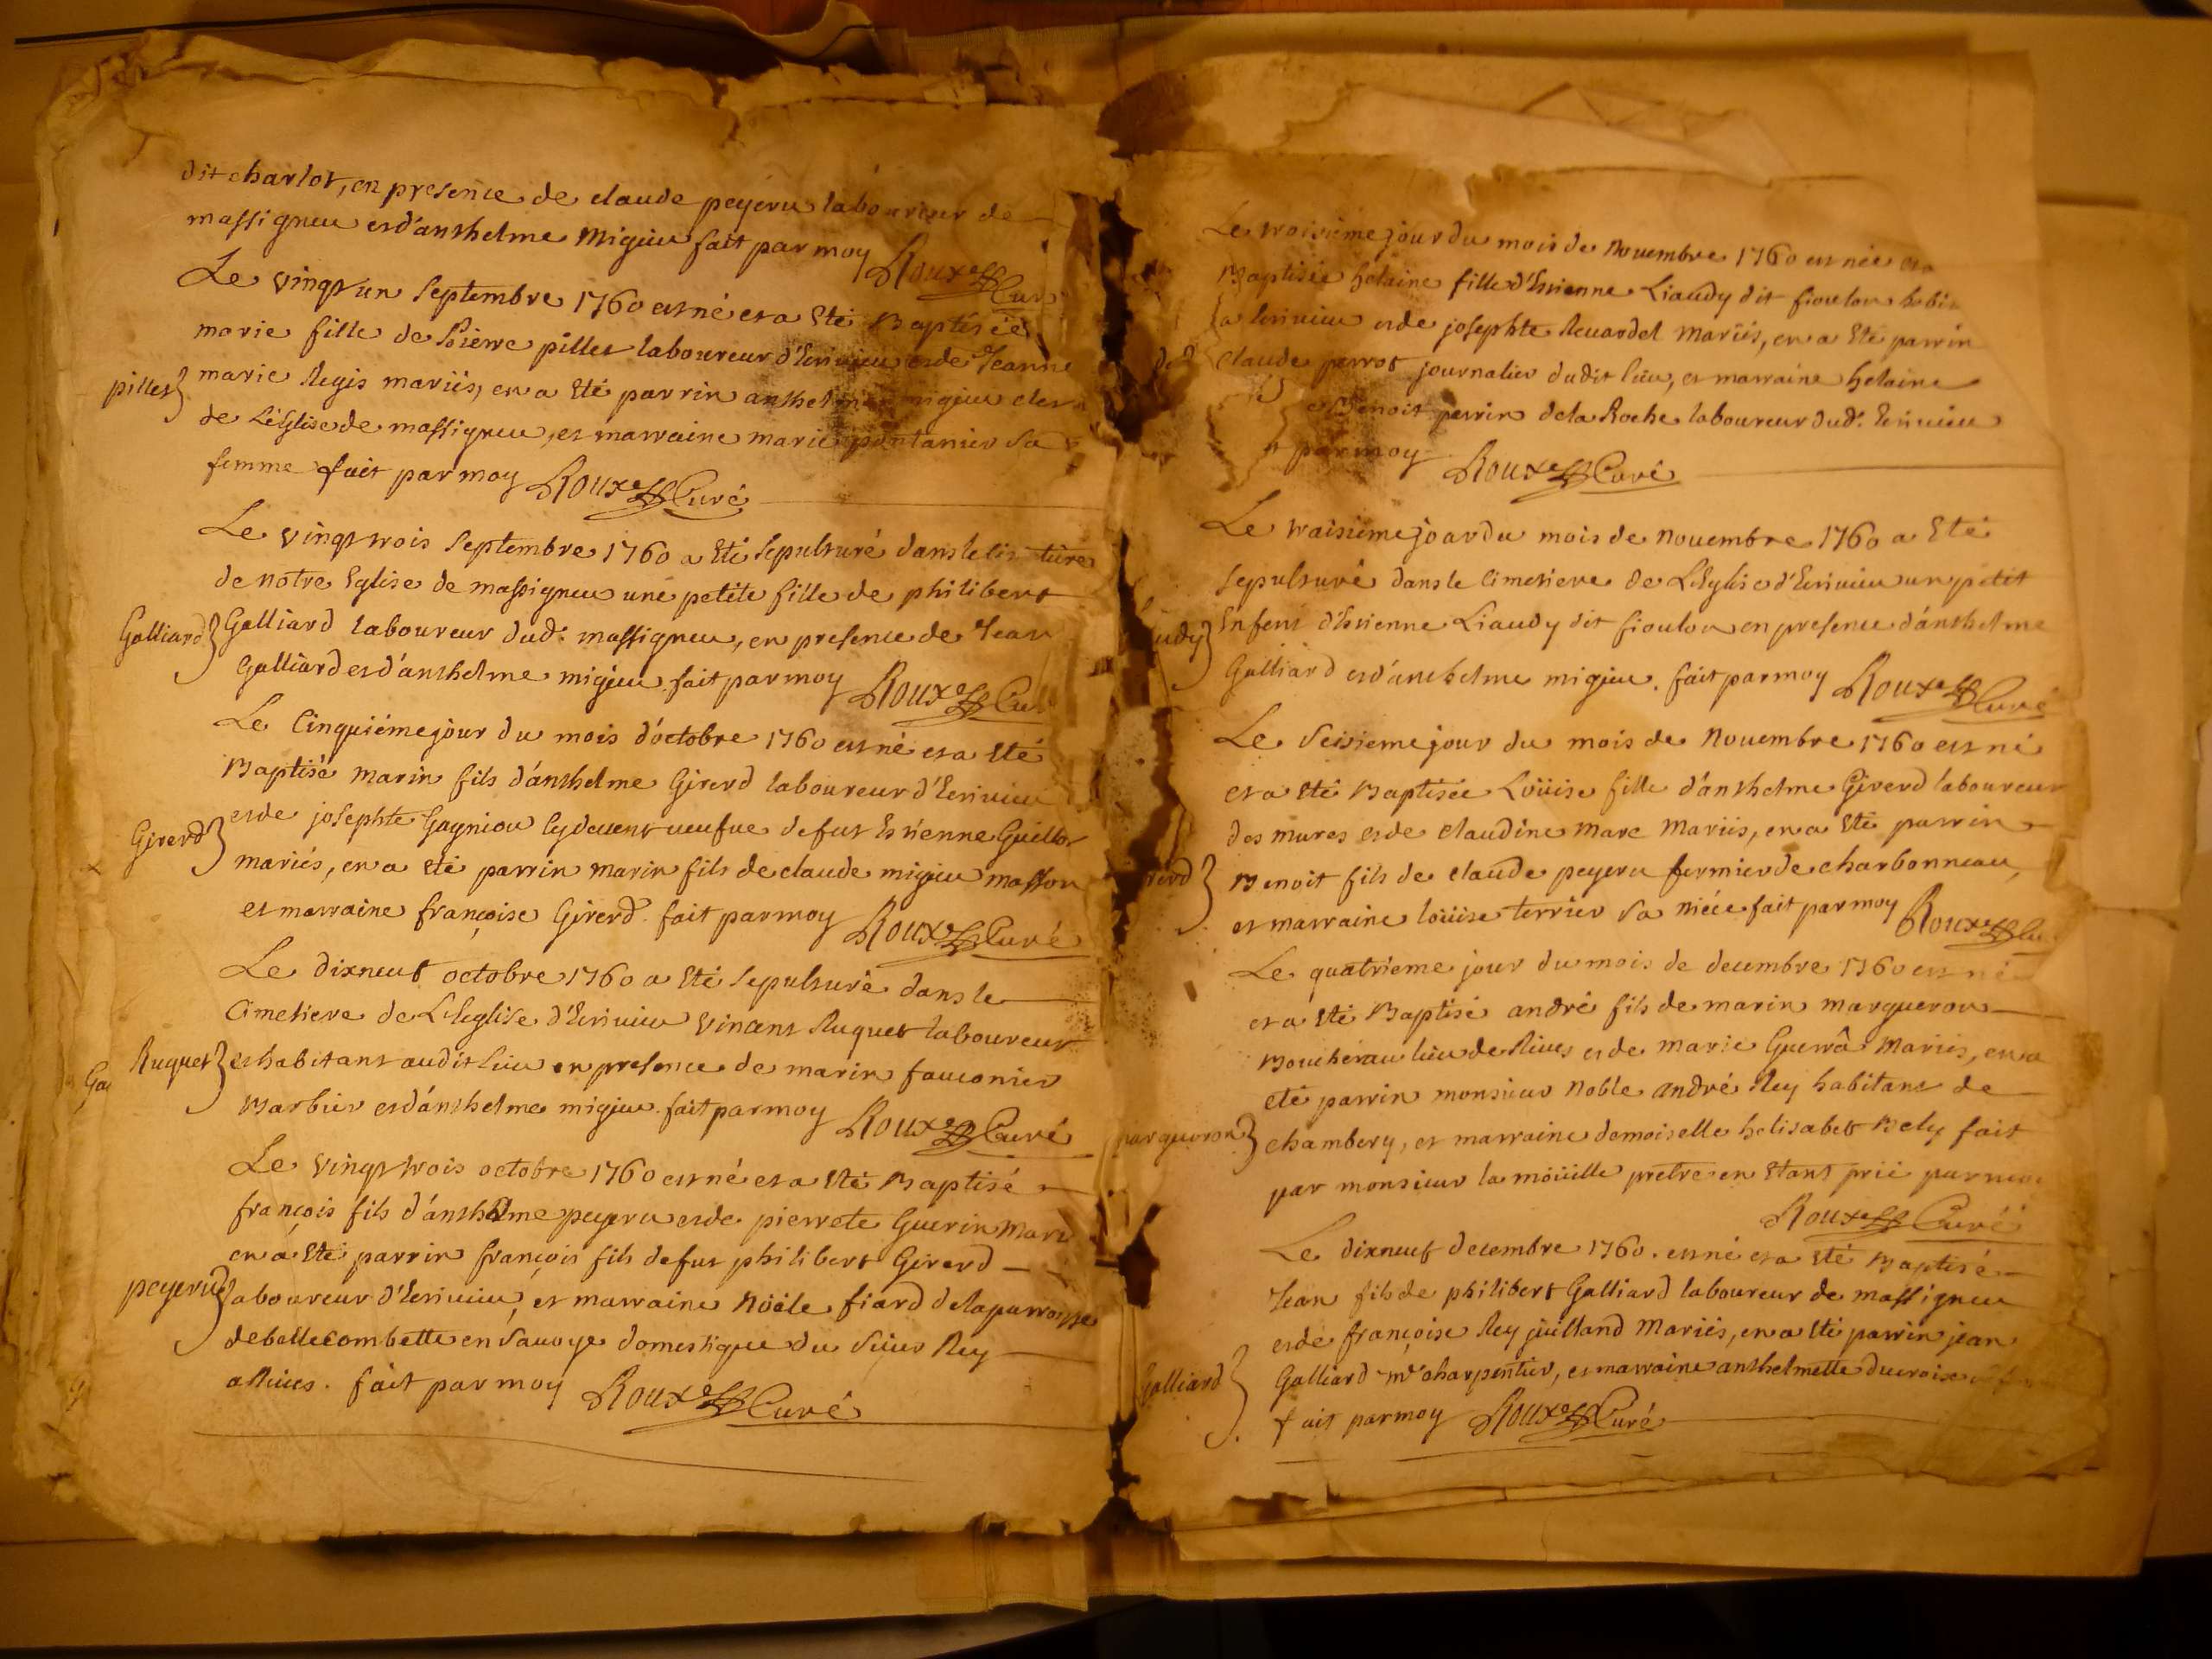 dit charlot, en presence de claude peyeru laboureur de
massigneu et d'anthelme Migieu fait par moy Roux Curé
Le vingt un septembre 1760 est né et a eté Baptisée
marie fille de Pierre pillet laboureur d'Ecrivieu et de Jeanne
pillet
marie Regis mariés, en a eté parrin anthelme migieu clerc
de L'eglise de massigneu, et marraine marie pantanier sa
femme fait par moy Roux Curé
Le vingt trois septembre 1760 a eté sepulturé dans le
de notre Eglise de massigneu une petite fille de philibert
Galliard
Galliard laboureur dud. massigneu, en presence de Jean
Galliard et d'anthelme migieu. fait par moy Roux Cu
Le Cinquiéme jour du mois d'octobre 1760 est né et a eté
Baptisé marin fils d'anthelme Girerd laboureur d'Ecrivieu
Girerd
et de josephte Gagniou cy devent veufve de fut Etienne Guillot
mariés, en a eté parrin marin fils de claude migieu masson
et marraine françoise Girerd. fait par moy Roux Curé
Le dixneuf octobre 1760 a eté sepulturé dans le
Cimetiere de L'eglise d'Ecrivieu Vincent Ruquet laboureur
Ruquet
et habitant audit lieu en presence de marin fauconier
Barbier et d'anthelme migieu. fait par moy Roux Curé
Le vingt trois octobre 1760 est né et a eté Baptisé
françois fils d'anthelme peyeru et de pierrete Guerin mari
en a eté parrin françois fils de fut philibert Girerd
peyeru
laboureur d'Ecrivieu, et marraine Noële fiard de la parroisse
de bellecombette en Savoye domestique du sieur Rey
a Rives. fait par moy Roux Curé
Le troisieme jour du mois de Novembre 1760 est née et a
Baptisée helaine fille d'Etienne Liaudy dit fioulou
a Ecrivieu et de josephte Revardel mariés, en a eté parrin
claude perrot journalier dudit lieu, et marraine helaine
et Benoit perrin de la Roche laboureur dud. Ecrivieu
par moy Roux Curé
Le troisieme jour du mois de Novembre 1760 a eté
sepulturé dans le Cimetiere de L'Eglise d'Ecrivieu un petit
udy
Enfent d'Etienne Liaudy dit fioulou en presence d'anthelme
Galliard et d'anthelme migieu. fait par moy Roux Curé
Le seisieme jour du mois de Novembre 1760 est né
et a eté Baptisée Loüise fille d'anthelme Girerd laboureur
des mures et de claudine Marc Mariés, en a eté parrin
rerd
Benoit fils de claude peyeru fermier de charbonneau,
et marraine loüise terrier sa niéce fait par moy Roux Cu
Le quatrieme jour du mois de decembre 1760 est né
et a eté Baptisé andré fils de marin marqueron
Boucher au lieu de Rives et de marie Guerrâ mariés, en a
eté parrin monsieur Noble andré Rey habitant de
marqueron
chambery, et marraine demoiselle helisabet Bely fait
par monsieur la moüille pretre en etant prié par moy
Roux Curé
Le dixneuf decembre 1760. est né et a eté Baptisé
Jean fils de philibert Galliard laboureur de massigneu
et de françoise Rey juilland Mariés, en a eté parrin jean
Galliard
Galliard me charpentier, et marraine anthelmette ducroix
fait par moy Roux Curé